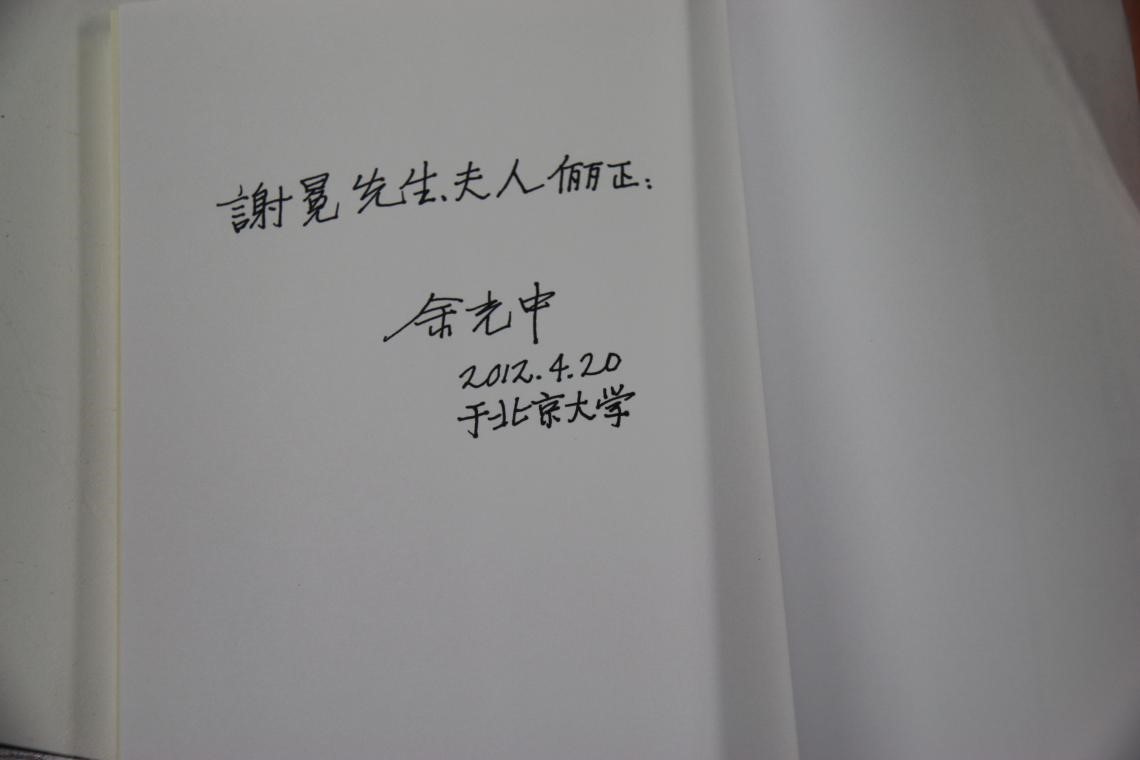 謝冕先生、夫人俪正：
余光中
2012.4.20
于北京大学